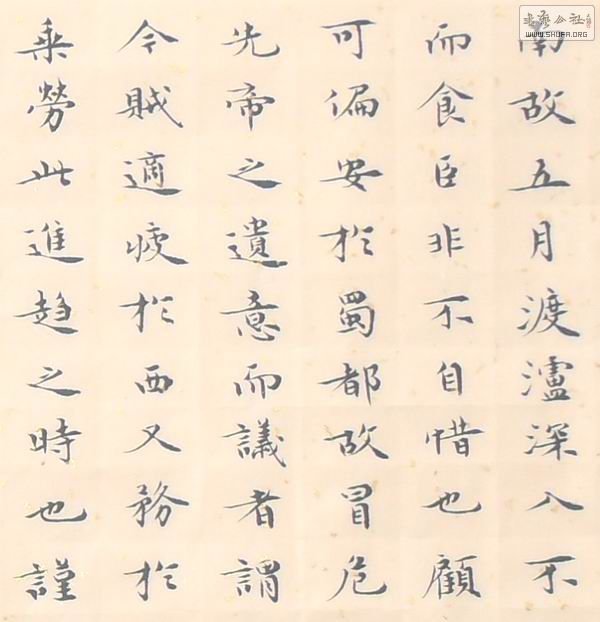 南故五月渡瀘深入不
而食臣非不自惜也顧
可偏安於蜀都故冒危
先帝之遺意而議者謂
今賊適疲於西又務於
乘勞此進趨之時也謹
书艺公社
WWW.SHUFA.ORG